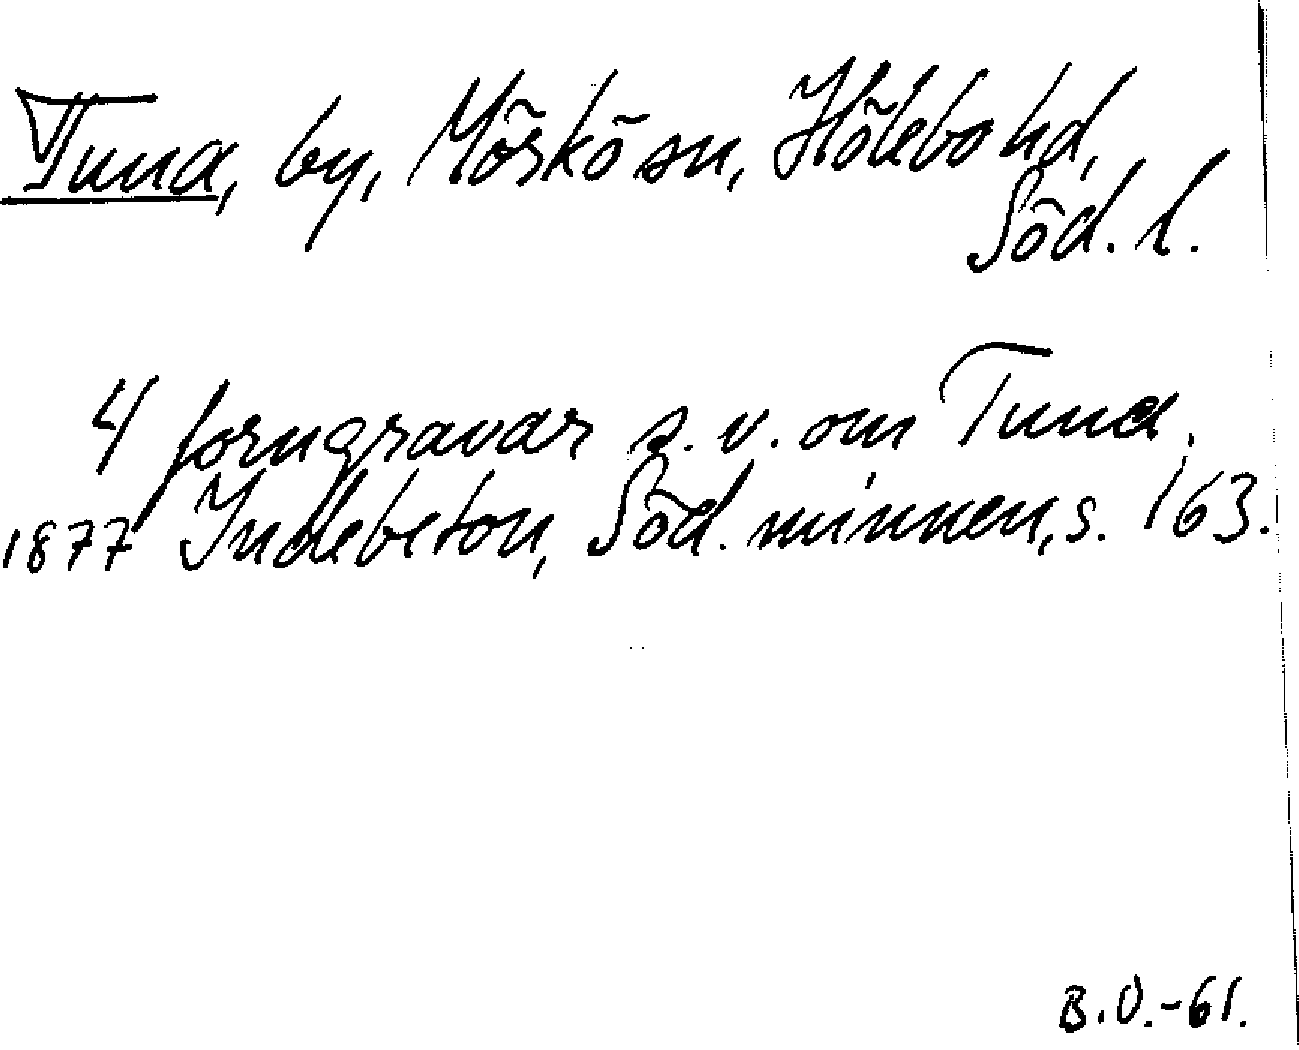 Tuna, by, Mörkö sn, Hölebo hd,
Söd. l.
4 forngravar s.v. om Tuna.
1877 Indebetou, Söd. minnen, s. 163.
B.O.-61.